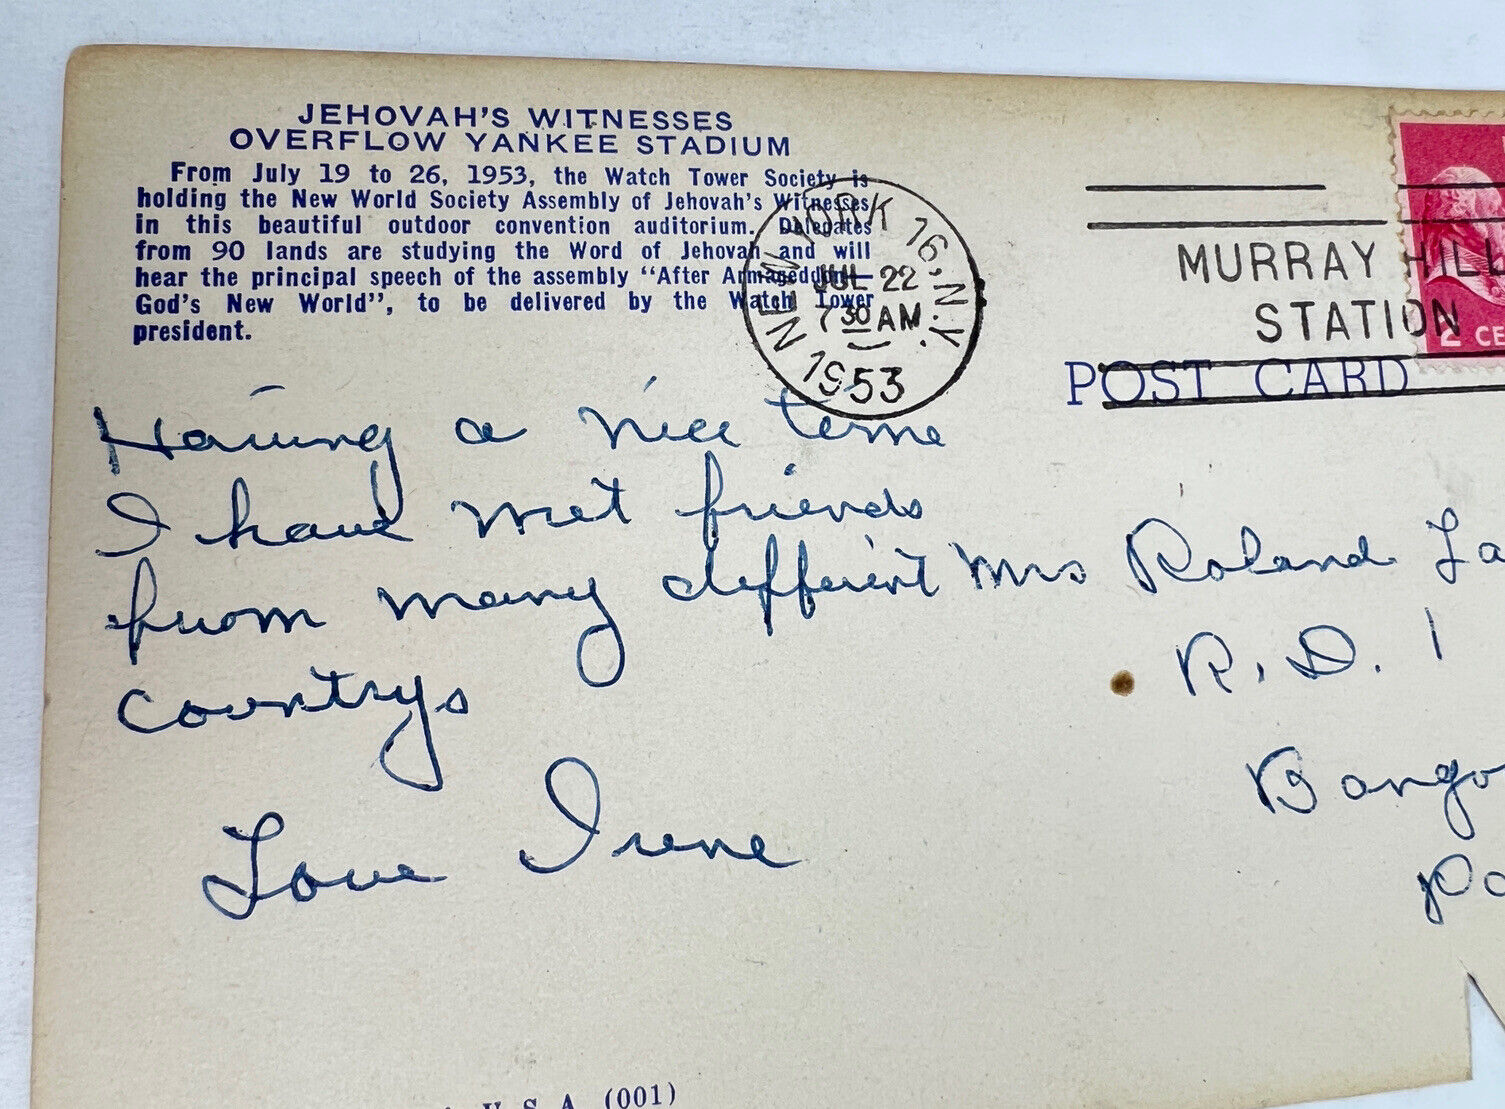 JEHOVAH'S WITNESSES
OVERFLOW YANKEE STADIUM
From July 19 to 26, 1953, the Watch Tower Society is
holding the New World Society Assembly of Jehovah's Witnesses
in this beautiful outdoor convention auditorium. Delegates
from 90 lands are studying the Word of Jehovah and will
hear the principal speech of the assembly "After Armageddon—
God's New World", to be delivered by the Watch Tower
president.
NEW YORK 16, N.Y.
JUL 22
7 30 AM
1953
MURRAY HILL
STATION
2 CE
POST CARD
Having a nice time
I have met friends
from many different
countrys
Love Irene
Mrs Roland La
R. D. 1
Bangor
Pa
U.S.A. (001)